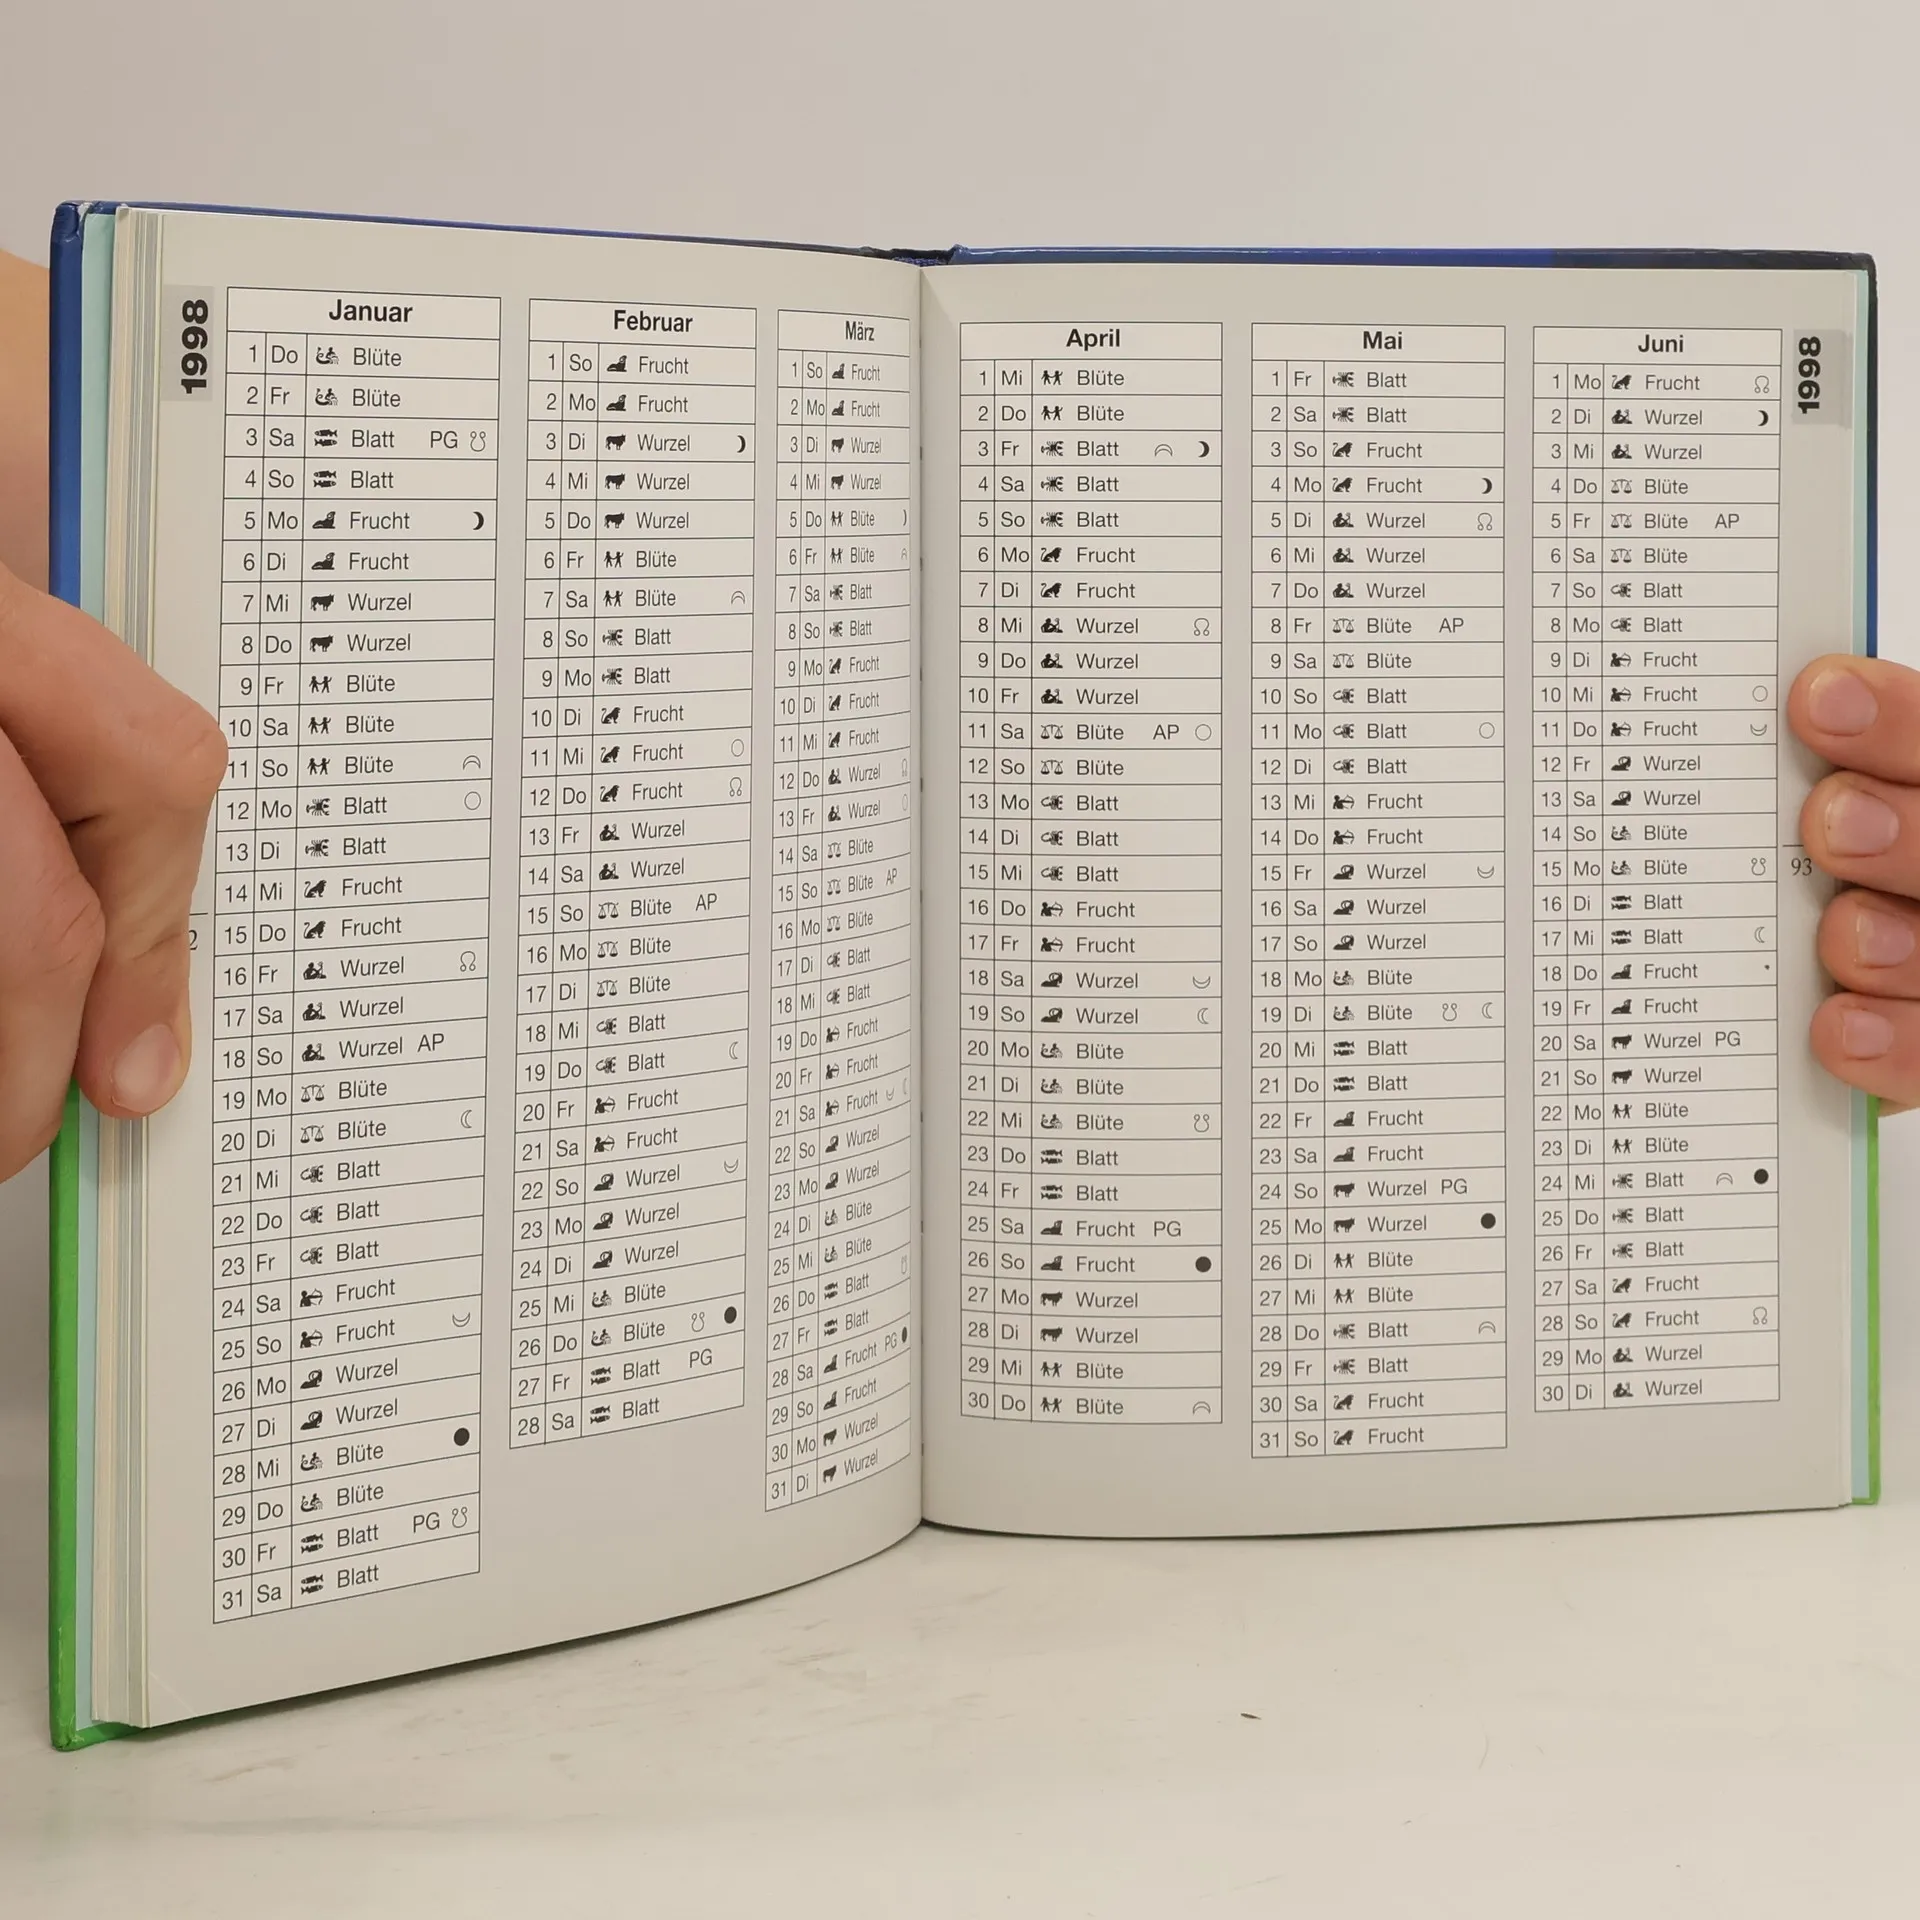 1998
Januar
1 Do Blüte
2 Fr Blüte
3 Sa Blatt PG
4 So Blatt
5 Mo Frucht
6 Di Frucht
7 Mi Wurzel
8 Do Wurzel
9 Fr Blüte
10 Sa Blüte
11 So Blüte
12 Mo Blatt
13 Di Blatt
14 Mi Frucht
15 Do Frucht
16 Fr Wurzel
17 Sa Wurzel
18 So Wurzel AP
19 Mo Blüte
20 Di Blüte
21 Mi Blatt
22 Do Blatt
23 Fr Blatt
24 Sa Frucht
25 So Frucht
26 Mo Wurzel
27 Di Wurzel
28 Mi Blüte
29 Do Blüte
30 Fr Blatt PG
31 Sa Blatt
Februar
1 So Frucht
2 Mo Frucht
3 Di Wurzel
4 Mi Wurzel
5 Do Wurzel
6 Fr Blüte
7 Sa Blüte
8 So Blatt
9 Mo Blatt
10 Di Frucht
11 Mi Frucht
12 Do Frucht
13 Fr Wurzel
14 Sa Wurzel
15 So Blüte AP
16 Mo Blüte
17 Di Blüte
18 Mi Blatt
19 Do Blatt
20 Fr Frucht
21 Sa Frucht
22 So Wurzel
23 Mo Wurzel
24 Di Wurzel
25 Mi Blüte
26 Do Blüte
27 Fr Blatt PG
28 Sa Blatt
März
1 So Frucht
2 Mo Frucht
3 Di Wurzel
4 Mi Wurzel
5 Do Blüte
6 Fr Blüte
7 Sa Blatt
8 So Blatt
9 Mo Frucht
10 Di Frucht
11 Mi Frucht
12 Do Wurzel
13 Fr Wurzel
14 Sa Blüte
15 So Blüte AP
16 Mo Blüte
17 Di Blatt
18 Mi Blatt
19 Do Frucht
20 Fr Frucht
21 Sa Frucht
22 So Wurzel
23 Mo Wurzel
24 Di Blüte
25 Mi Blüte
26 Do Blatt
27 Fr Blatt
28 Sa Frucht PG
29 So Frucht
30 Mo Wurzel
31 Di Wurzel
2
April
1 Mi Blüte
2 Do Blüte
3 Fr Blatt
4 Sa Blatt
5 So Blatt
6 Mo Frucht
7 Di Frucht
8 Mi Wurzel
9 Do Wurzel
10 Fr Wurzel
11 Sa Blüte AP
12 So Blüte
13 Mo Blatt
14 Di Blatt
15 Mi Blatt
16 Do Frucht
17 Fr Frucht
18 Sa Wurzel
19 So Wurzel
20 Mo Blüte
21 Di Blüte
22 Mi Blüte
23 Do Blatt
24 Fr Blatt
25 Sa Frucht PG
26 So Frucht
27 Mo Wurzel
28 Di Wurzel
29 Mi Blüte
30 Do Blüte
Mai
1 Fr Blatt
2 Sa Blatt
3 So Frucht
4 Mo Frucht
5 Di Wurzel
6 Mi Wurzel
7 Do Wurzel
8 Fr Blüte AP
9 Sa Blüte
10 So Blatt
11 Mo Blatt
12 Di Blatt
13 Mi Frucht
14 Do Frucht
15 Fr Wurzel
16 Sa Wurzel
17 So Wurzel
18 Mo Blüte
19 Di Blüte
20 Mi Blatt
21 Do Blatt
22 Fr Frucht
23 Sa Frucht
24 So Wurzel PG
25 Mo Wurzel
26 Di Blüte
27 Mi Blüte
28 Do Blatt
29 Fr Blatt
30 Sa Frucht
31 So Frucht
Juni
1 Mo Frucht
2 Di Wurzel
3 Mi Wurzel
4 Do Blüte
5 Fr Blüte AP
6 Sa Blüte
7 So Blatt
8 Mo Blatt
9 Di Frucht
10 Mi Frucht
11 Do Frucht
12 Fr Wurzel
13 Sa Wurzel
14 So Blüte
15 Mo Blüte
16 Di Blatt
17 Mi Blatt
18 Do Frucht
19 Fr Frucht
20 Sa Wurzel PG
21 So Wurzel
22 Mo Blüte
23 Di Blüte
24 Mi Blatt
25 Do Blatt
26 Fr Blatt
27 Sa Frucht
28 So Frucht
29 Mo Wurzel
30 Di Wurzel
1998
93